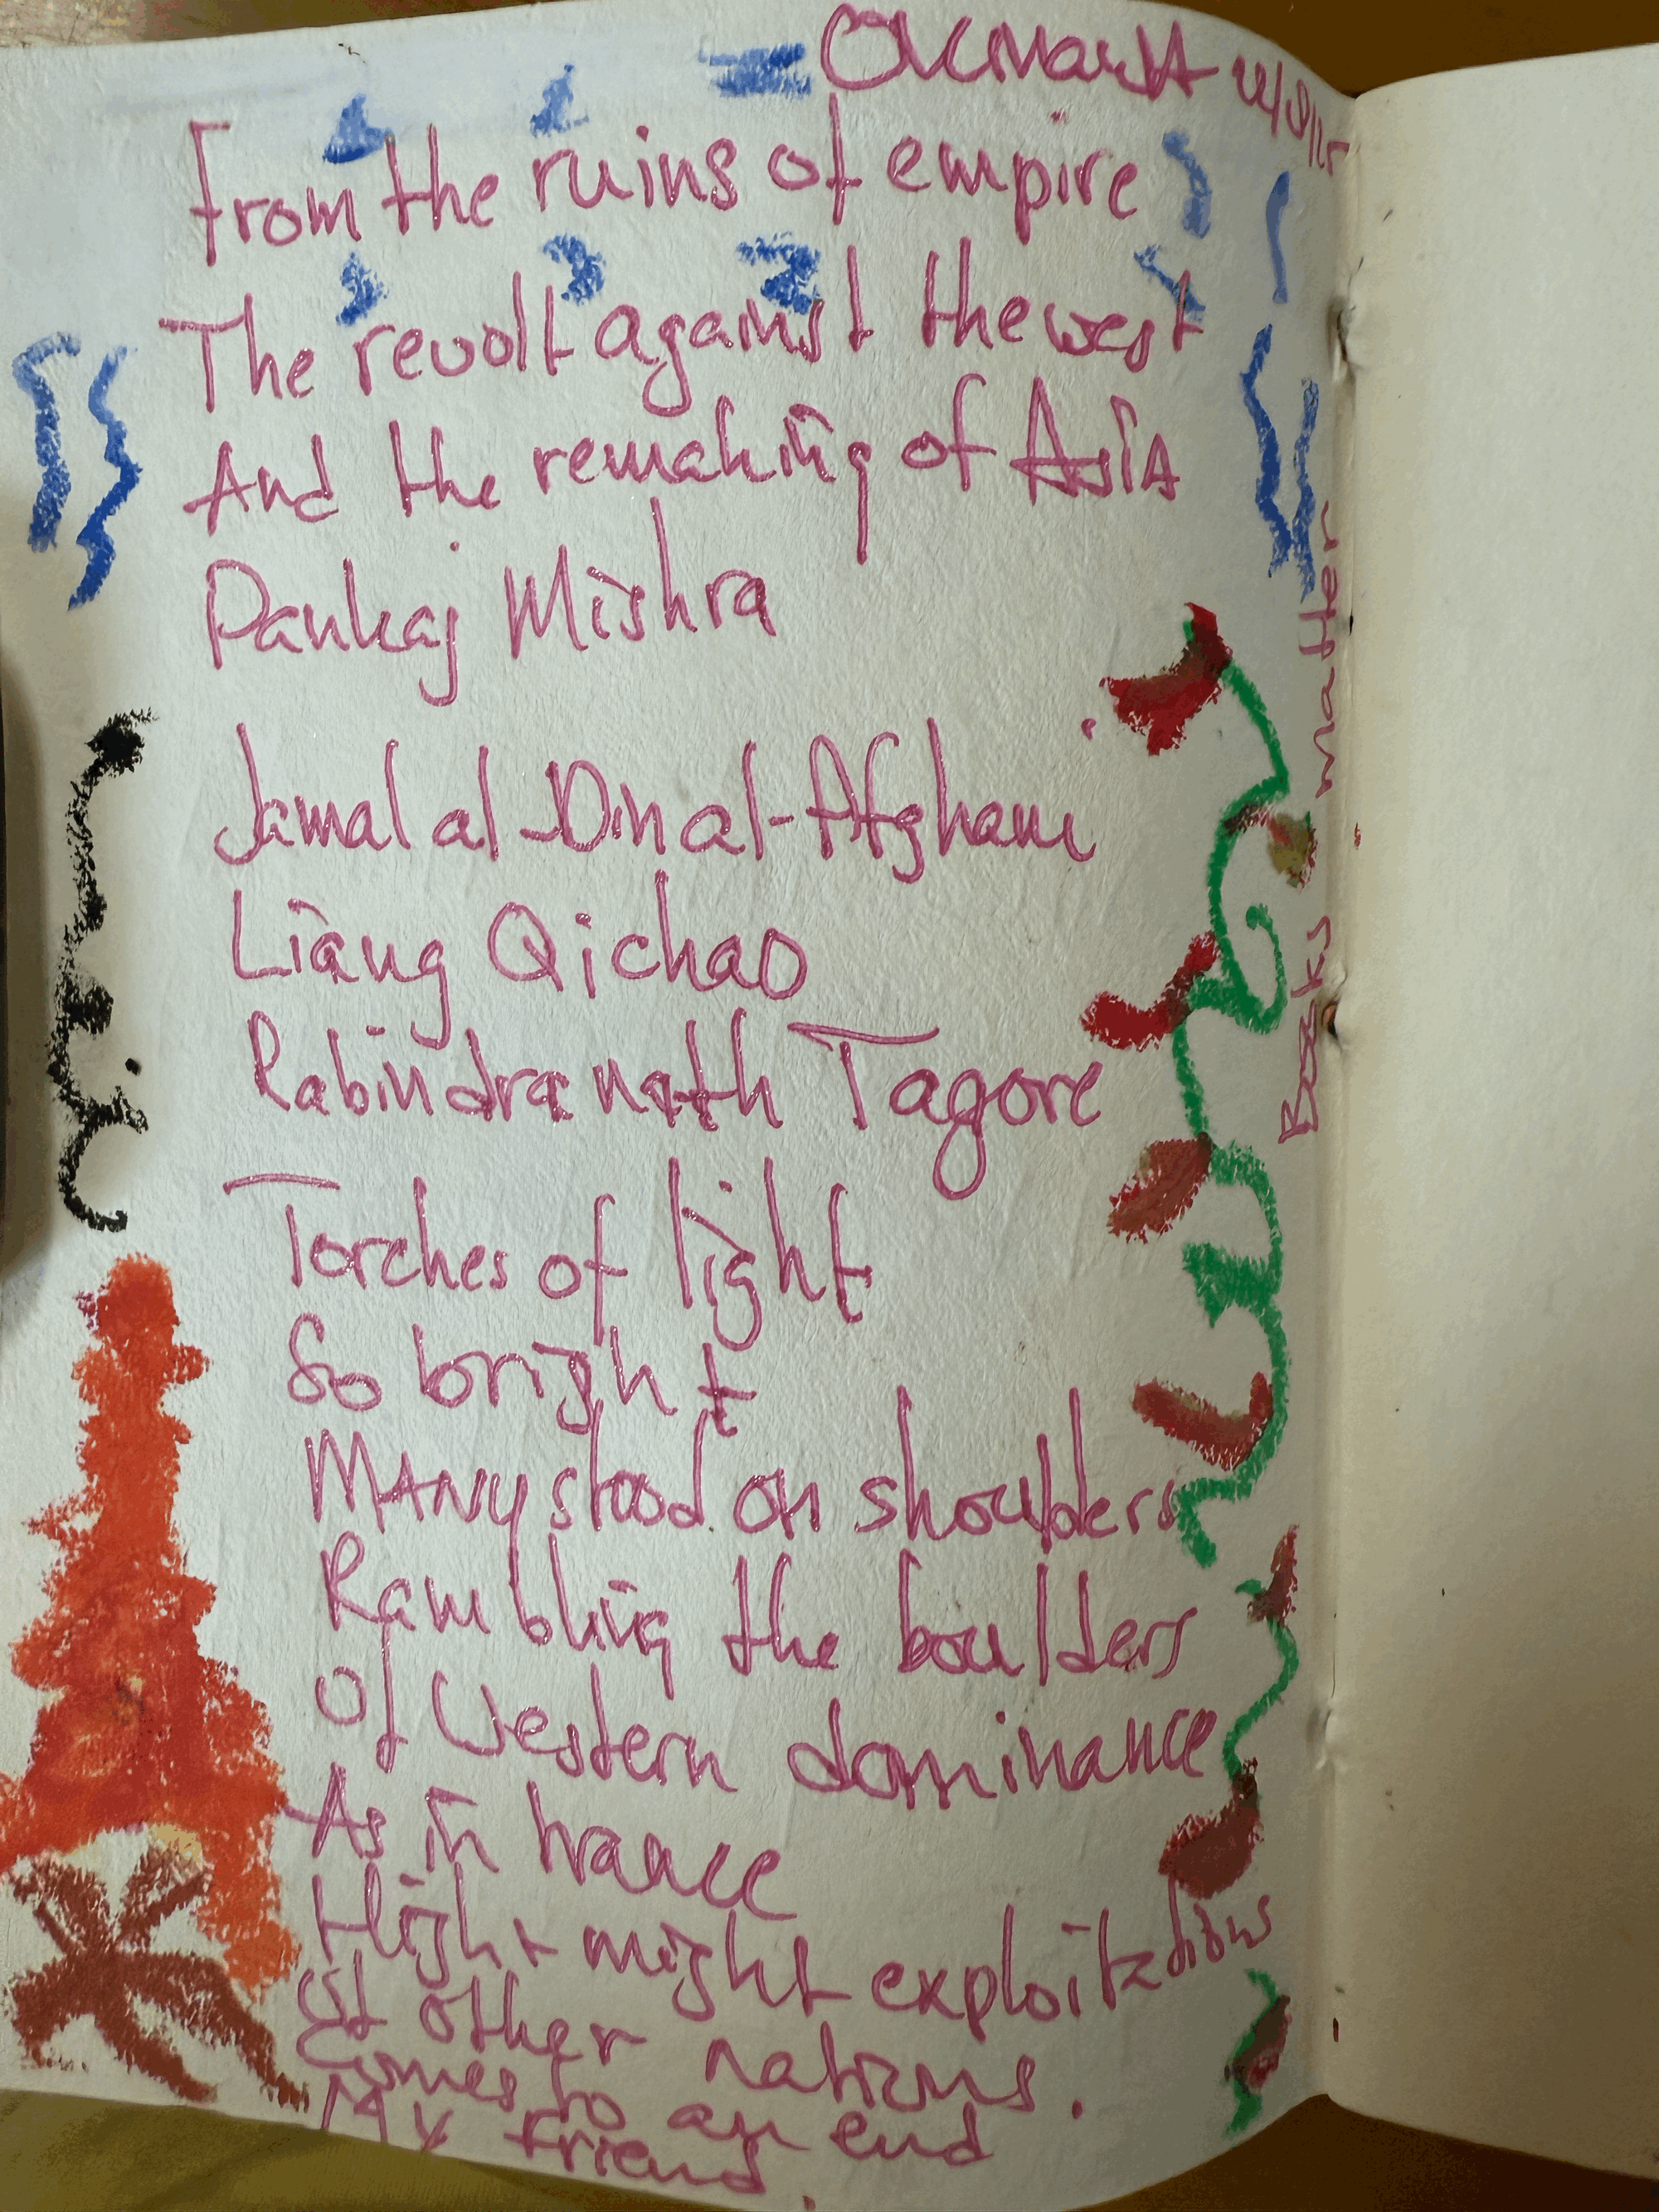 From the ruins of empire
The revolt against the west
And the remaking of AsiA
Pankaj Mishra
Jamal al-Din al-Afghani
Liang Qichao
Rabindranath Tagore
Torches of light
So bright
MANy stood on shoulders
Rambling the boulders
Of Western dominance
As in trance
High might exploitations
of other nations.
Comes to an end
My friend.
Books matter